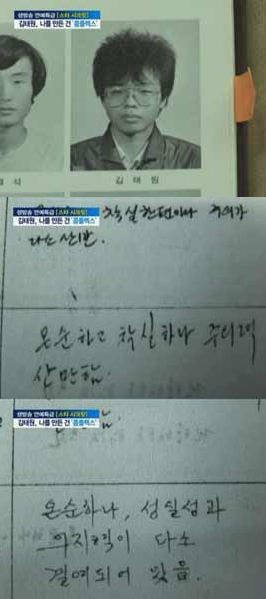 생방송 연예특급 [스타 시크릿]
김태원, 나를 만든 건 '콤플렉스'
석
김 태 원
생방송 연예특급 [스타 시크릿]
김태원, 나를 만든 건 '콤플렉스'
착실한편이나 주의가
다소 산만.
온순하고 착실하나 주의력
산만함.
생방송 연예특급 [스타 시크릿]
김태원, 나를 만든 건 '콤플렉스'
온순하나, 성실성과
의지력이 다소
결여되어 있음.